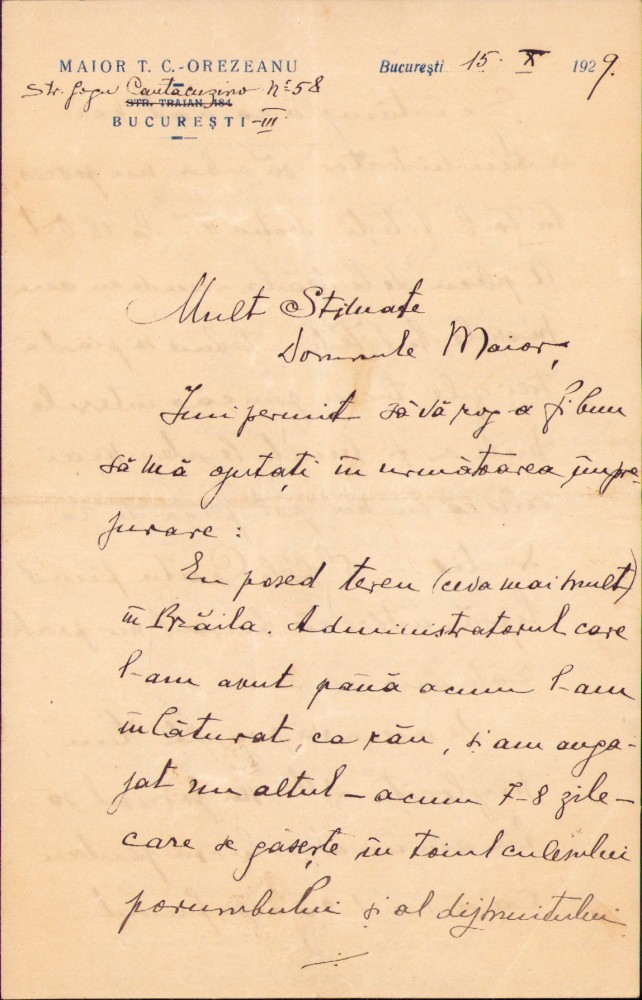 MAIOR T. C.-OREZEANU
București 15. X 1929.
Str. Gogu Cantacuzino No 58
STR. TRAIAN, 184
BUCUREȘTI-III
Mult Stimate
Domnule Maior,
Îmi permit să vă rog a fi bun
să mă ajutați în următoarea împre-
jurare:
Eu posed teren (ceva mai mult)
în Brăila. Administratorul care
l-am avut până acum l-am
înlăturat, ca rău, și am anga-
jat un altul – acum 7-8 zile –
care se găsește în toiul culesului
porumbului și al dijmuitului